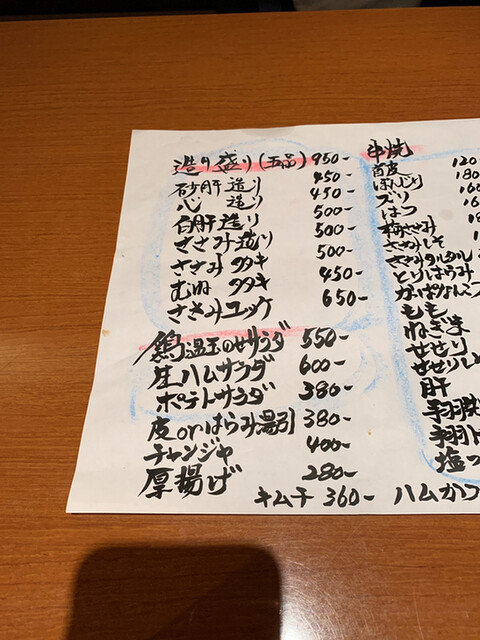 造り盛り(五品) 950-
砂肝造り 450-
心造り 450-
白肝造り 500-
ささみ造り 500-
ささみタタキ 500-
むねタタキ 450-
ささみユッケ 650-
鶏温玉のせサラダ 550-
生ハムサラダ 600-
ポテトサラダ 380-
皮orはらみ湯引 380-
チャンジャ 400-
厚揚げ 280-
キムチ 360- ハムカツ
串焼
首皮 120
ぼんじり 180
ズリ 160
はつ 16
梅ささみ 18
ささみしそ
ささみタルタル
とりはらみ
かっぱなんこつ
もも
ねぎ楽
せせり
せせりし
肝
手羽
手羽
塩つ